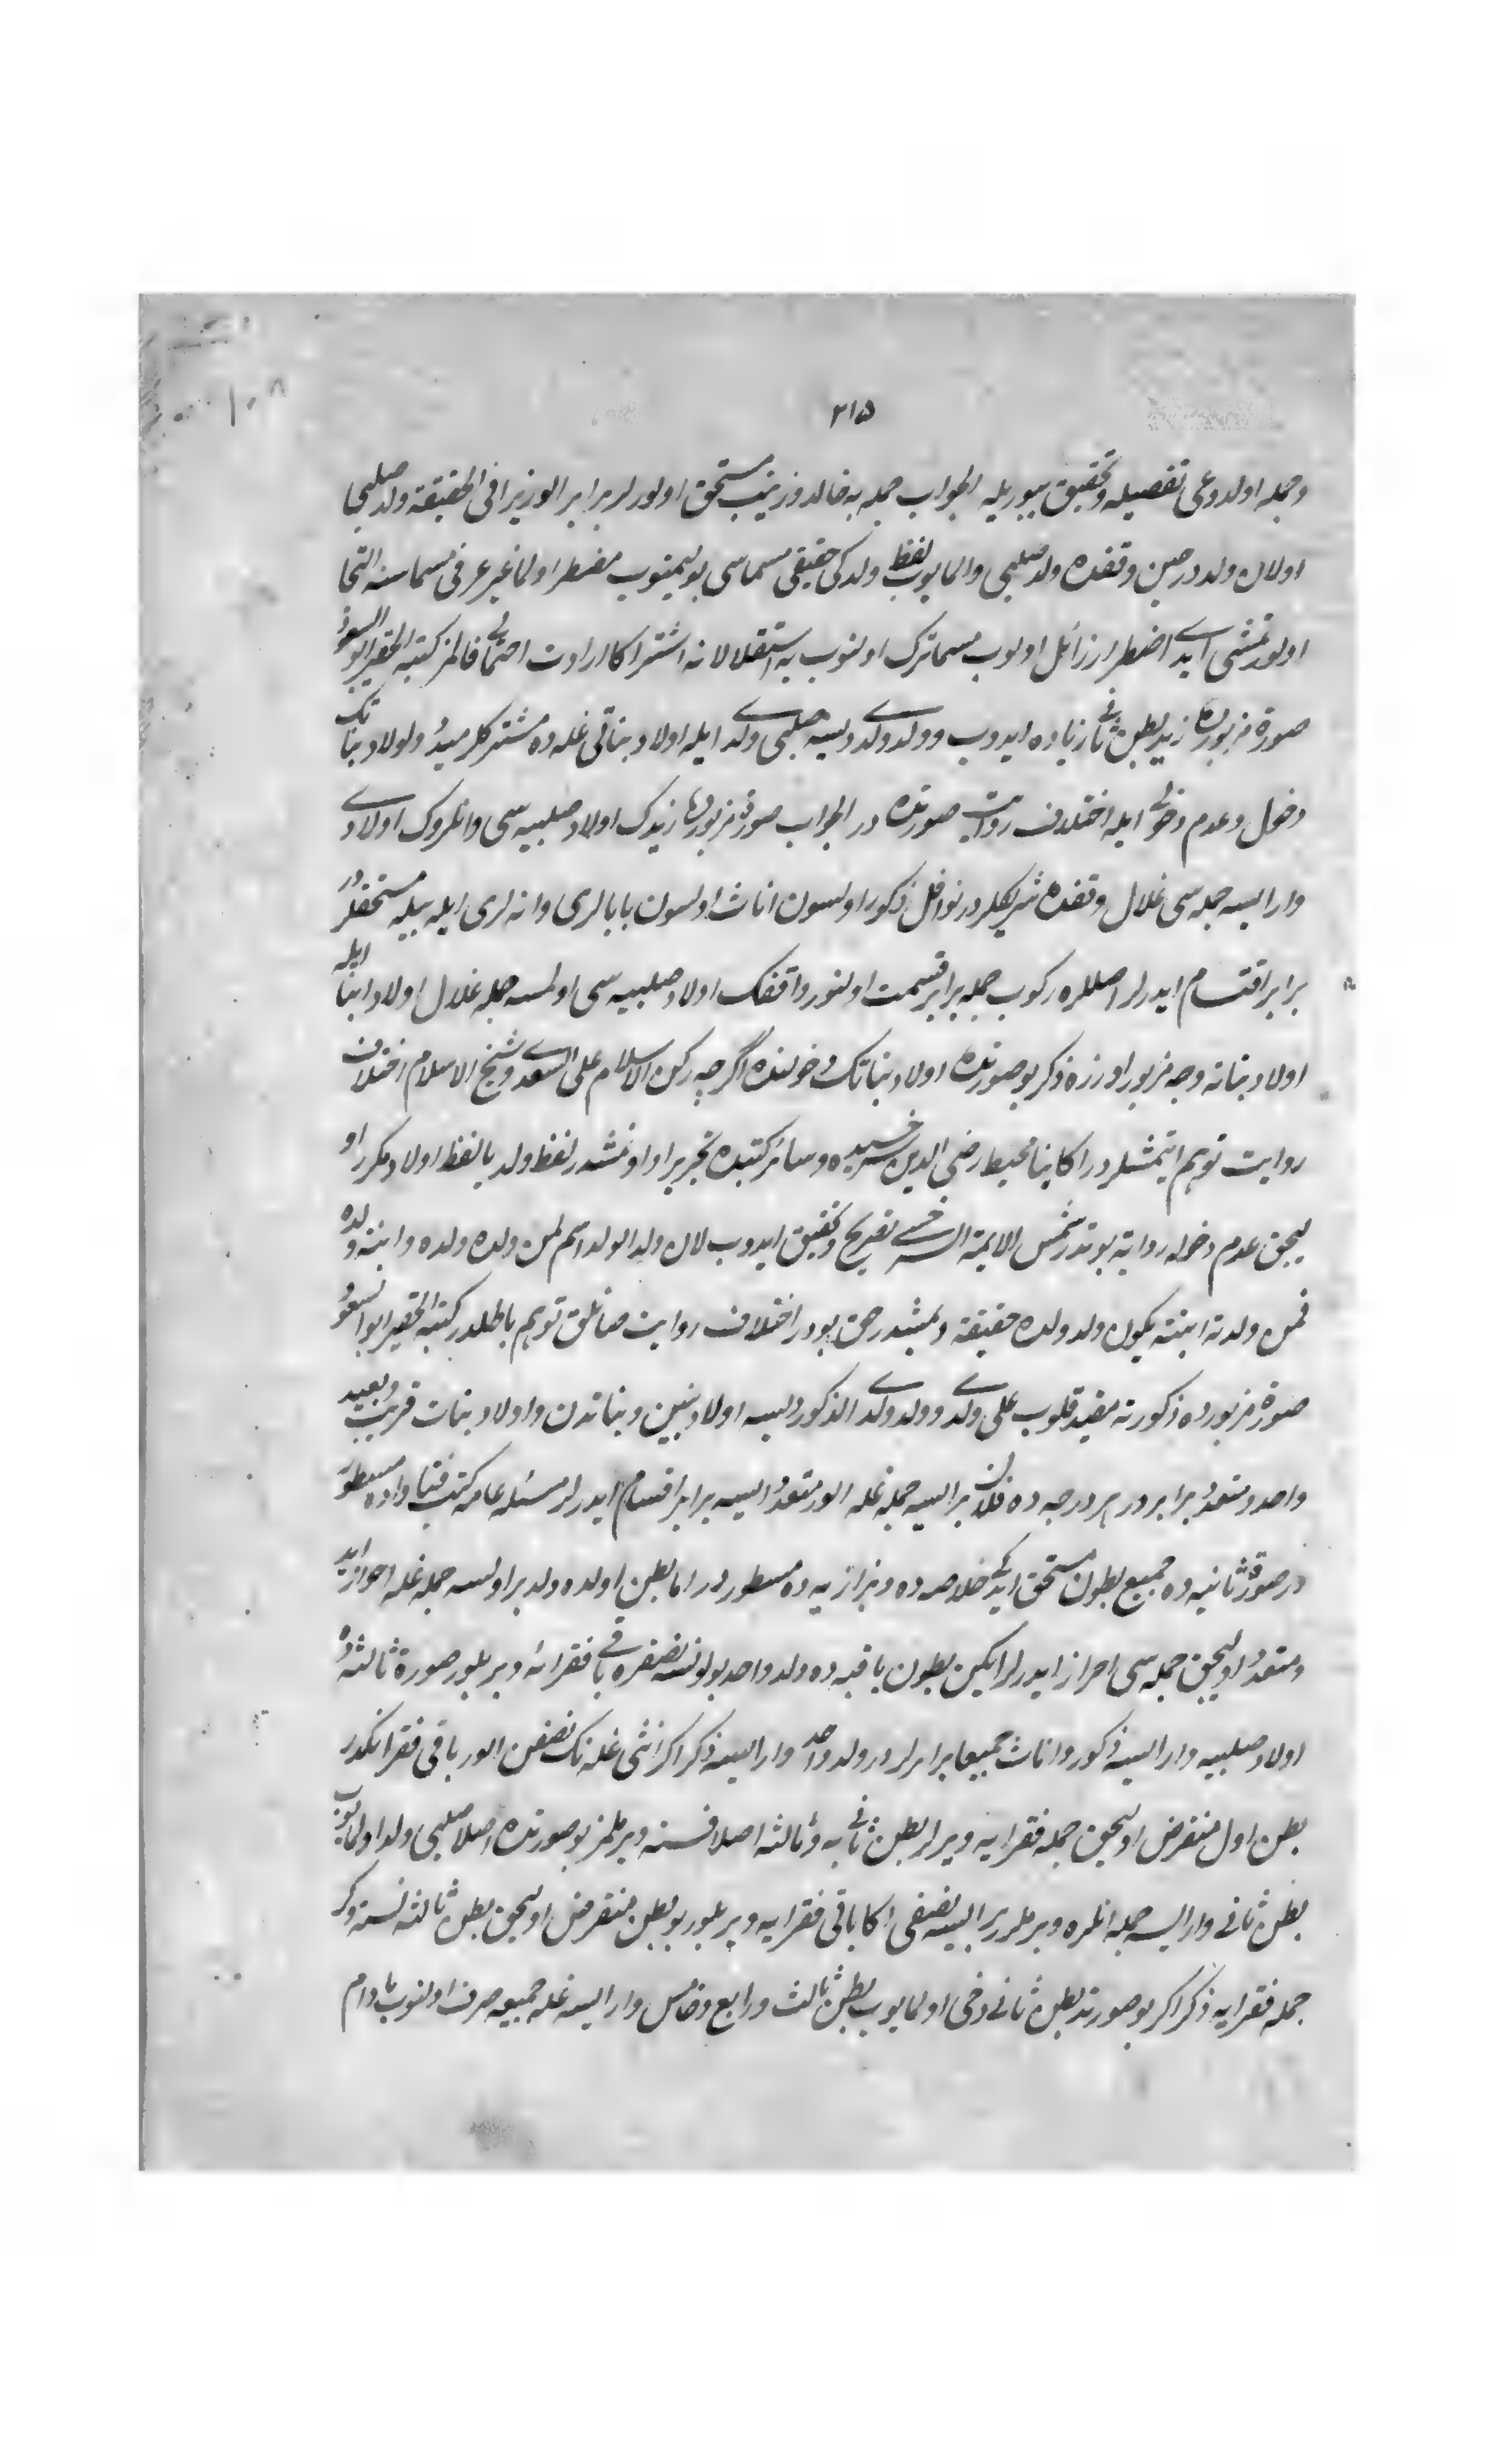 ٣١٥
وجمله اولدوغى تفصيله وتحقيق بيوريله الجواب جمله به خالد وزينب مستحق اولورلر برابر الور زيرا فى الحقيقة ولد صلبيا
اولان ولددر حين وقفده ولد صلبى والمايوب لفظ ولدكى حقيقى مسماسى بولنميوب مضطر اولماغيز عرفى مسماسنه التجا
اولنمشيدى اضطرار زائل اولوب مسما ترك اولنوب به استقلالا نه اشتراكا ارادت احتمالى قالمز كتبه الحقير ابو السعود
صورة مزبورده زيد بطن ثانى زياده ايدوب وولد ولدى ديسه صلبى ولدى ايله اولاد بناتى غله ده مشتركلرميدر ولولاد بناتك
دخول وعدم دخولى ايله اختلاف روايت صورتنده در الجواب صورة مزبورده زيدك اولاد صلبيه سى وانلروك اولادى
وار ايسه جمله سى غلال وقفده شريكلردر نوافل ذكور اولسون اناث اولسون بابالرى وانه لرى ايله بيله مستحقلردر
برابر اقتسام ايدرلر اصللره ركوب جمله برابر قسمت اولنور واقفك اولاد صلبيه سى اولمسه جمله غلال اولاد ابنا ايله
اولاد بناته وجه مزبور اوزره ذكر بو صورتده اولاد بناتك دخولنده اگرچه ركن الاسلام على السعدى وشيخ الاسلام اختلاف
روايت توهم ايتمشلردر اكا بناء محيط رضى الدين سرخسيده وسائر كتبده تحرير اولونمشدر لفظ ولد يا لفظ اولاد مكرر او
ليجق عدم دخوله رواية يوقدر شمس الايمة السرخسى تصريح وتحقيق ايدوب لان ولد الولد اسم لمن ولده ولده وابنته ولده
فمن ولدته ابنته يكون ولد ولده حقيقة ديمشدر حق بودر اختلاف روايت صانلق توهم باطلدر كتبه الحقير ابو السعود
صورة مزبورده ذكورته مقيد قلوب على ولدى وولد ولدى الذكور ديسه اولاد بنين وبناتدن واولاد بنات قريب وبعيد
واحد ومتعدد برابردر هر درجه ده قلان بر ايسه جمله غله الور متعدد ايسه برابر اقتسام ايدرلر مسئله عامه كتب فتاواده مسطور
در صورة ثانيه ده جميع بطون مستحق ايدكى خلاصه ده وبزازيه ده مسطوردر اما بطن اولده ولد بر اولسه جمله غله احراز ايدر
ومتعدد اوليجق جمله سى احراز ايدرلر ايكن بطون باقيه ده ولد واحد بولونسه نصفره باقى فقرائه ويريلور صورة ثالثه ده
اولاد صلبيه وار ايسه ذكور واناث جميعا برابرلردر ولد واحد وار ايسه ذكر اكر انثى غله نك نصفن الور باقى فقرانكدر
بطن اول منقرض اوليجق جمله فقرايه ويرلر بطن ثانى به وثالثه اصلا نسنه ويرلمز بو صورتده اصلا صلبى ولد اولمايوب
بطن ثانى وار ايسه جمله انلره ويرلر بر ايسه نصفى اكا باقى فقرايه ويريلور بو بطن منقرض اوليجق بطن ثالثه نسنه يوقدر
جمله فقرايه ذكر اكر بو صورتده بطن ثانى دخى اولمايوب بطن ثالث ورابع وخامس وار ايسه غله جميعه صرف اولنوب مادام